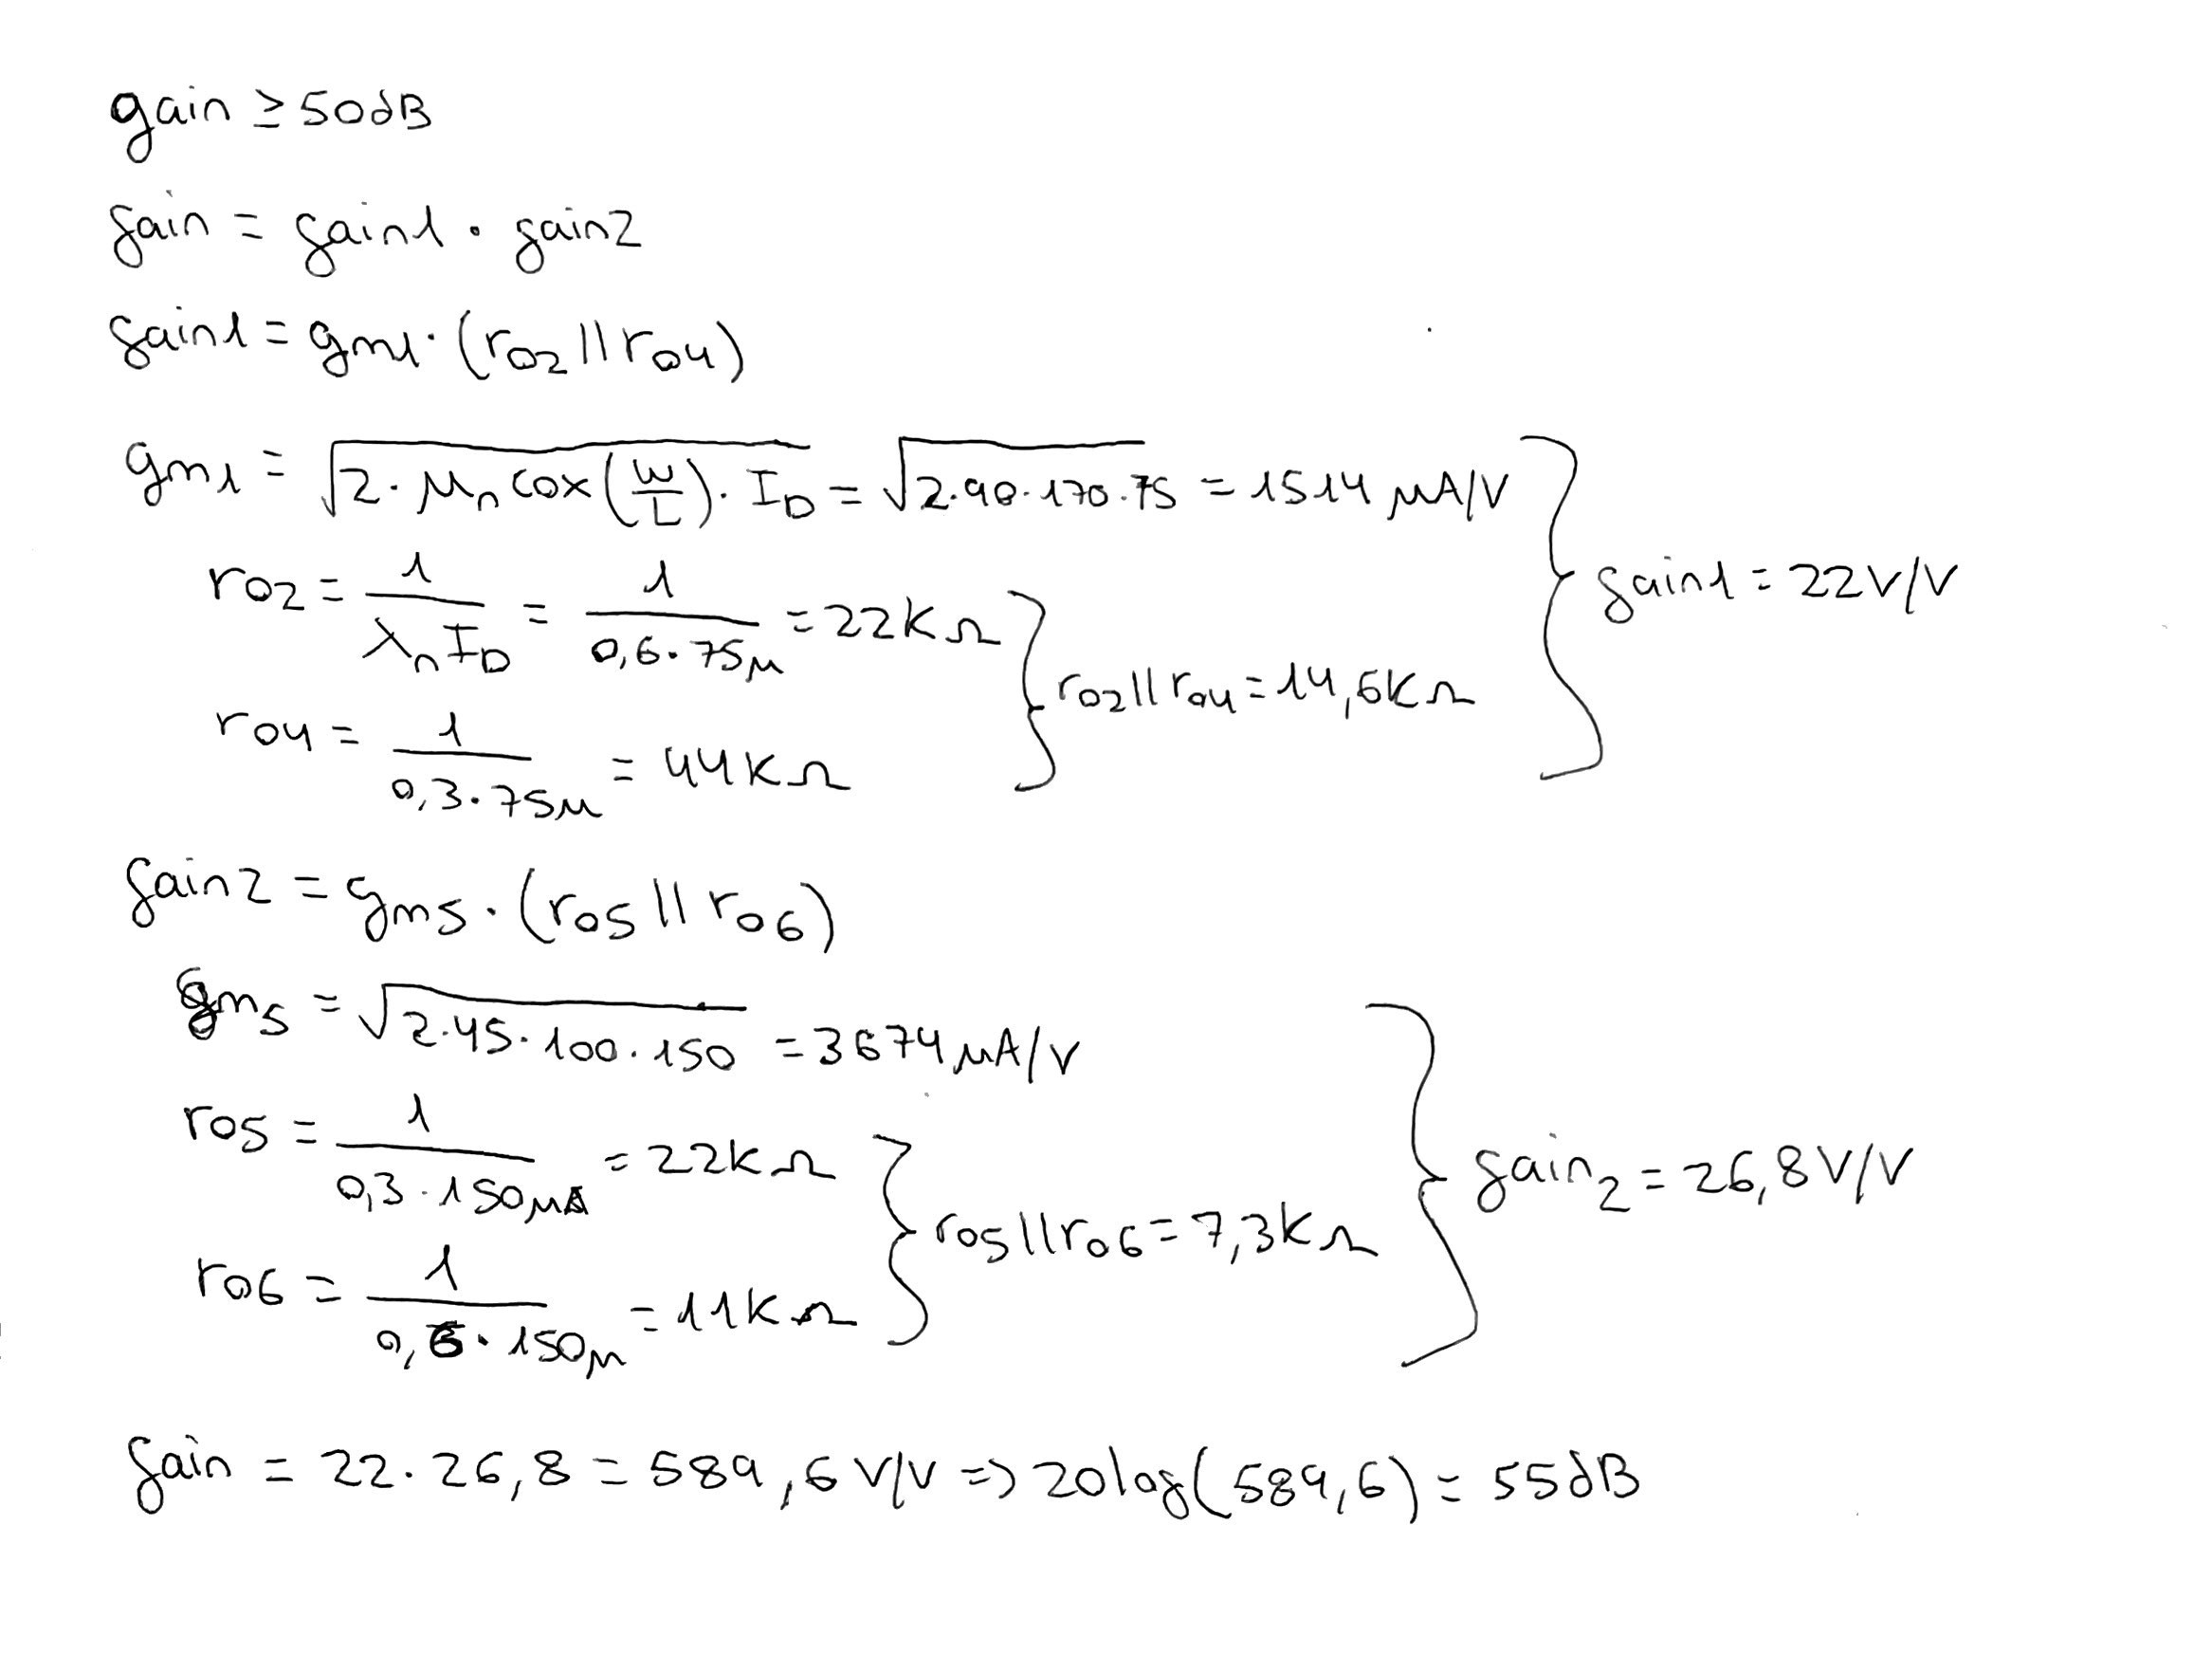 gain ≥ 50dB
gain = gain1 · gain2
gain1 = gm1 · (ro2 || ro4)
gm1 = √(2 · μn Cox (W/L) · ID) = √(2·90·170·75) = 1514 μA/V
ro2 = 1/(λn ID) = 1/(0,6·75μ) = 22KΩ
ro4 = 1/(0,3·75μ) = 44KΩ
ro2 || ro4 = 14,6KΩ
gain1 = 22V/V
gain2 = gm5 · (ro5 || ro6)
gm5 = √(2·45·100·150) = 3674 μA/V
ro5 = 1/(0,3·150μA) = 22KΩ
ro6 = 1/(0,6·150μ) = 11KΩ
ro5 || ro6 = 7,3KΩ
gain2 = 26,8V/V
gain = 22·26,8 = 589,6 V/V => 20log(589,6) = 55dB